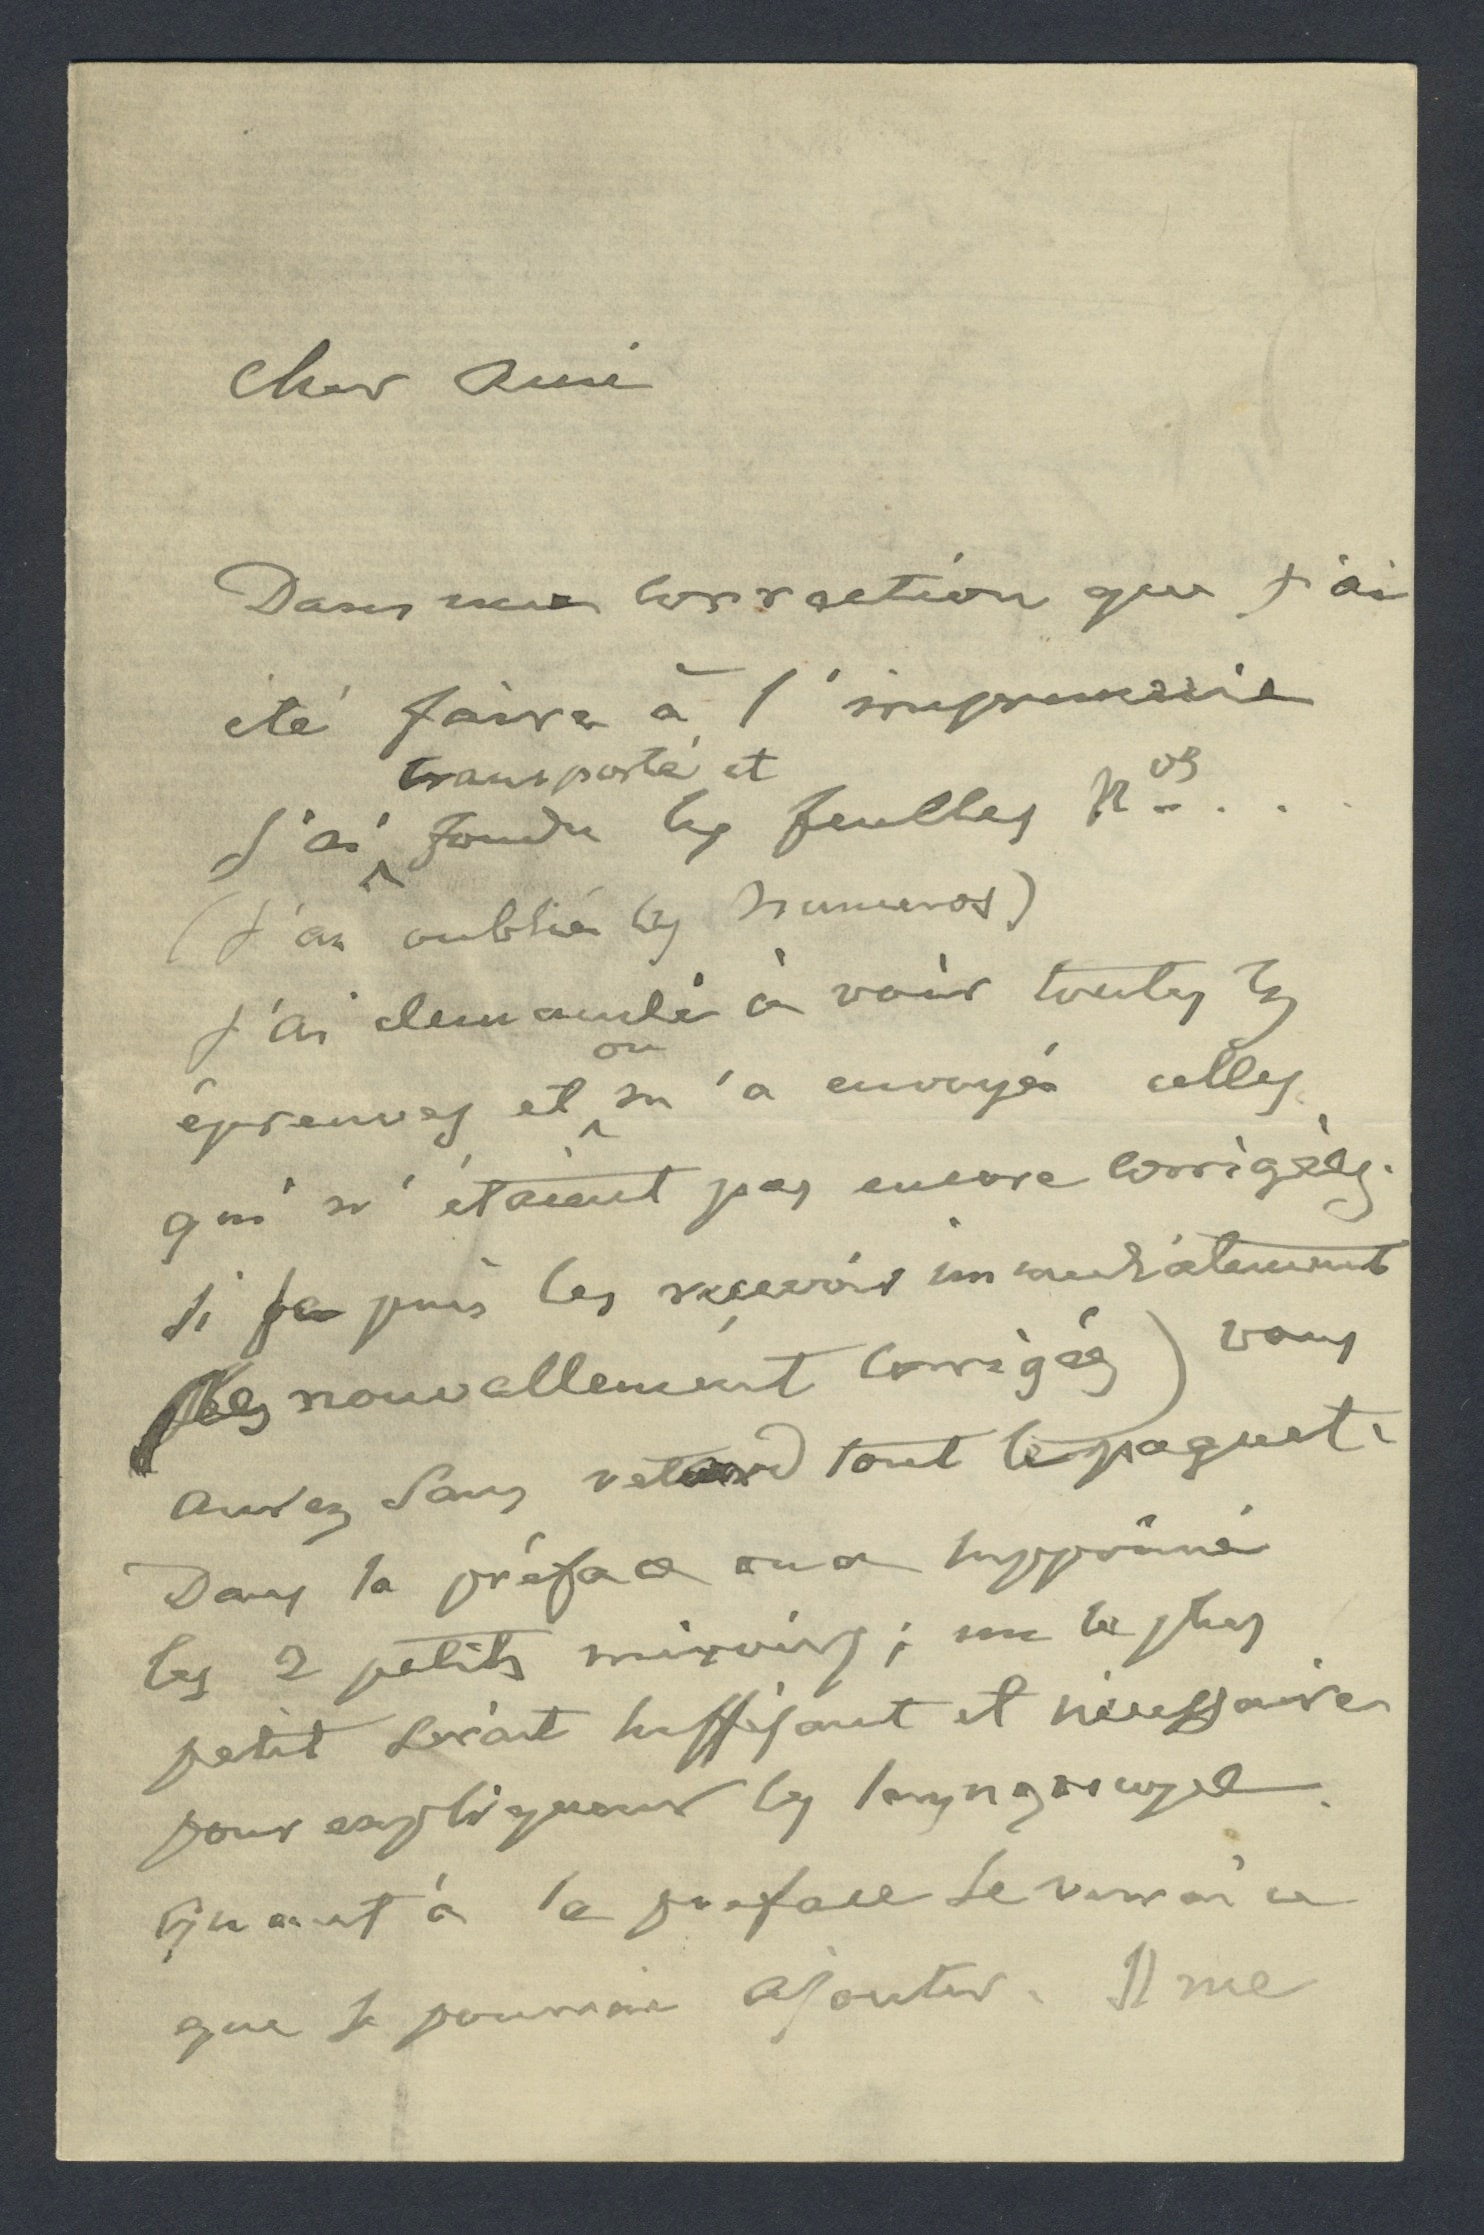 Cher ami
Dans une correction que j'ai
été faire à l'imprimerie
transporté et
J'ai fondu les feuilles Nos . . .
(J'ai oublié les numeros)
J'ai demandé à voir toutes les
on
épreuves et m'a envoyé celles
qui n'étaient pas encore corrigées.
Si je puis les recevoir immediatement
(les nouvellement corrigés) vous
aurez sans retard tout le paquet.
Dans la préface on a supprimé
les 2 petits miroirs ; un le plus
petit serait suffisant et nécessaire
pour expliquer les laryngoscope.
Quant à la preface je verrai ce
que je pourrai ajouter. Il me